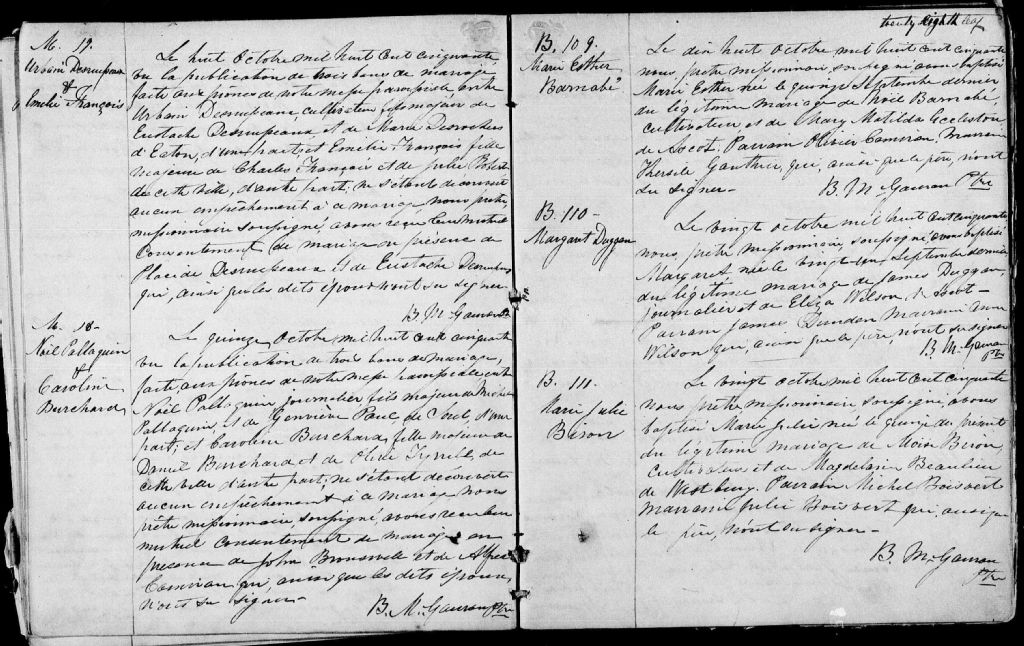 M. 19.
Urbain Desruisseaux
&
Emelie François
Le huit Octobre mil huit cent cinquante
vu la publication de trois bans de mariage
faite aux prônes de notre messe paroissiale entre
Urbain Desruisseaux, cultivateur, fils majeur de
Eustache Desruisseaux, et de Marie Desrochers
d'Eaton, d'une part; et Emelie François fille
majeure de Charles François et de Julie
de cette ville, d'autre part; ne s'étant découvert
aucun empêchement à ce mariage nous prêtre
missionnaire soussigné, avons reçu leur mutuel
Consentement de mariage en présence de
Placide Desruisseaux et de Eustache Desruisseaux
qui, ainsi que les dits époux n'ont su signer.
B. McGauran Ptre
M. 18-
Noël Pallaquin
&
Caroline
Burchard
Le quinze Octobre mil huit cent cinquante
vu la publication de trois bans de mariage,
faite aux prônes de notre messe paroissiale entre
Noël Pallaquin journalier fils majeur de Michel
Pallaquin, et de Geneviève Paul de d'une
part; et Caroline Burchard, fille majeure de
Daniel Burchard et de Olive Tyrrell, de
cette ville d'autre part; ne s'étant découvert
aucun empêchement à ce mariage Nous
prêtre missionnaire soussigné, avons reçu leur
mutuel consentement de mariage en
présence de John et de Alfred
Camiran qui, ainsi que les dits époux,
n'ont su signer-
B. McGauran Ptre
twenty eighth leaf
B. 109.
Marie Esther
Barnabé
Le dix huit Octobre mil huit cent cinquante
nous, prêtre missionnaire soussigné avons baptisé
Marie Esther née le quinze Septembre dernier
du légitime mariage de Noël Barnabé,
cultivateur et de Mary Matilda Eccleston
de Ascot. Parrain Olivier Camiran, Marraine
Thersile Gauthier, qui, ainsi que le père, n'ont
su signer-
B. McGauran Ptre
B. 110-
Margaret Duggan
Le vingt octobre mil huit cent cinquante
nous, prêtre missionnaire soussigné, avons baptisé
Margaret, née le vingt un Septembre dernier
du légitime mariage de James Duggan,
journalier et de Eliza Wilson
Parrain James Marraine Ann
Wilson qui, ainsi que le père, n'ont su signer
B. McGauran
Ptre
B. 111.
Marie Julie
Biron
Le vingt octobre mil huit cent cinquante
nous prêtre missionnaire soussigné avons
baptisé Marie Julie née le quinze du présent
du légitime mariage de Moïse Biron,
cultivateur et de Magdelaine Beaulieu
de Westbury. Parrain Michel Boisvert
marraine Julie Boisvert qui, ainsi que
le père, n'ont su signer-
B. McGauran
Ptre